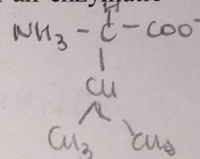 H
NH3 - C - COO-
CH
CH3 CH3